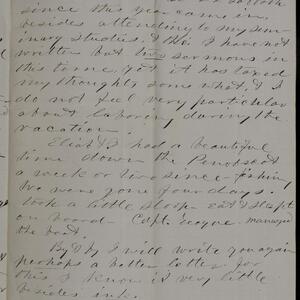 since this year came in
besides attending to my sem-
inary studies, & tho. I have not
written but two sermons in
this time, yet it has taxed
my thoughts some what, & I
do not feel very particular
about laboring during the
vacation.
Eliot & I had a beautiful
time down the Penobscot
a week or two since fishing
We were gone four days.
Took a little sloop eat & slept
on board Capt. managed
the boat.
By & by I will write you again
perhaps a better letter for
this I know is very little
besides ink.